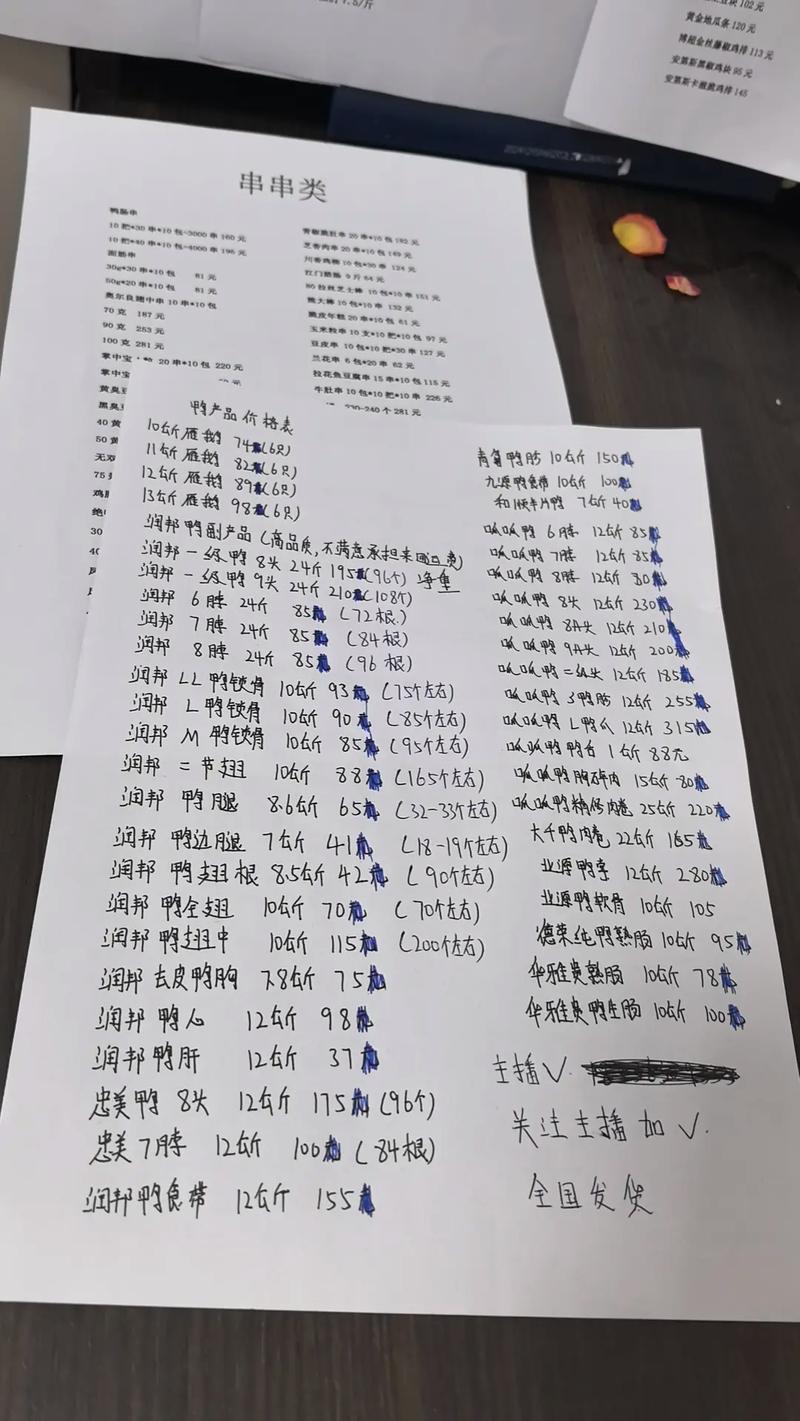 7.5/斤
102元
黄金地瓜条120元
博超金丝藤椒鸡排113元
安第斯黑椒鸡块95元
安第斯卡滋脆鸡排145
串串类
鸭肠串
10把*30串*10包=3000串160元
10把*40串*10包=4000串196元
面筋串
30g*30串*10包 81元
50g*20串*10包 81元
奥尔良翅中串10串*10包
70克 187元
90克 253元
100克 281元
掌中宝 20串*10包 220元
掌中宝
黄臭豆
黑臭豆
40黄
50黄
无双
75
鸡
绝
30
40
青椒脆肚串20串*10包182元
芝香肉串20串*10包149元
川香鸡柳10包*30串 124元
江门腊肠9斤64元
80拉丝芝士棒10包*10串151元
熊大棒10包*10串132元
脆皮年糕20串*10包61元
玉米粒串10支*10把*10包 97元
豆皮串 10包*10把*30串127元
兰花串6包*20串62元
拉花鱼豆腐串15串*10包115元
牛肚串10包*10把*10串226元
230-240个281元
鸭产品价格表
10公斤雁鹅 74(6只)
11公斤雁鹅 82(6只)
12公斤雁鹅 89(6只)
13公斤雁鹅 98(6只)
润邦鸭副产品(高品质,不满意承担来回运费)
润邦一级鸭8头24斤195(96个)净重
润邦一级鸭9头24斤210(108个)
润邦6脖24斤 85(72根)
润邦7脖24斤 85(84根)
润邦8脖24斤 85(96根)
润邦LL鸭锁骨10公斤93(75个左右)
润邦L鸭锁骨10公斤90(85个左右)
润邦M鸭锁骨10公斤85(95个左右)
润邦二节翅10公斤88(165个左右)
润邦鸭腿8.6公斤65(32-33个左右)
润邦鸭边腿7公斤41(18-19个左右)
润邦鸭翅根8.5公斤42(90个左右)
润邦鸭全翅10公斤70(70个左右)
润邦鸭翅中10公斤115(200个左右)
润邦去皮鸭胸7.8公斤75
润邦鸭心 12公斤 98
润邦鸭肝 12公斤 37
忠美鸭8头12公斤175(96个)
忠美7脖12公斤100(84根)
润邦鸭食带12公斤155
鸭肠10公斤150
九源鸭食带10公斤100
和顺丰片鸭7公斤40
呱呱鸭6脖12公斤85
呱呱鸭7脖12公斤85
呱呱鸭8脖12公斤80
呱呱鸭8头12公斤230
呱呱鸭8A头12公斤210
呱呱鸭9A头12公斤200
呱呱鸭二级头12公斤185
呱呱鸭3鸭肠12公斤255
呱呱鸭L鸭爪12公斤315
呱呱鸭鸭舌1公斤88元
呱呱鸭胸碎肉15公斤80
呱呱鸭精修肉卷25公斤220
大千鸭肉卷22公斤165
业源鸭掌12公斤280
业源鸭软骨10公斤105
德荣纯鸭熟肠10公斤95
华雅贵熟肠10公斤78
华雅贵鸭生肠10公斤100
主播V.
关注主播加V.
全国发货